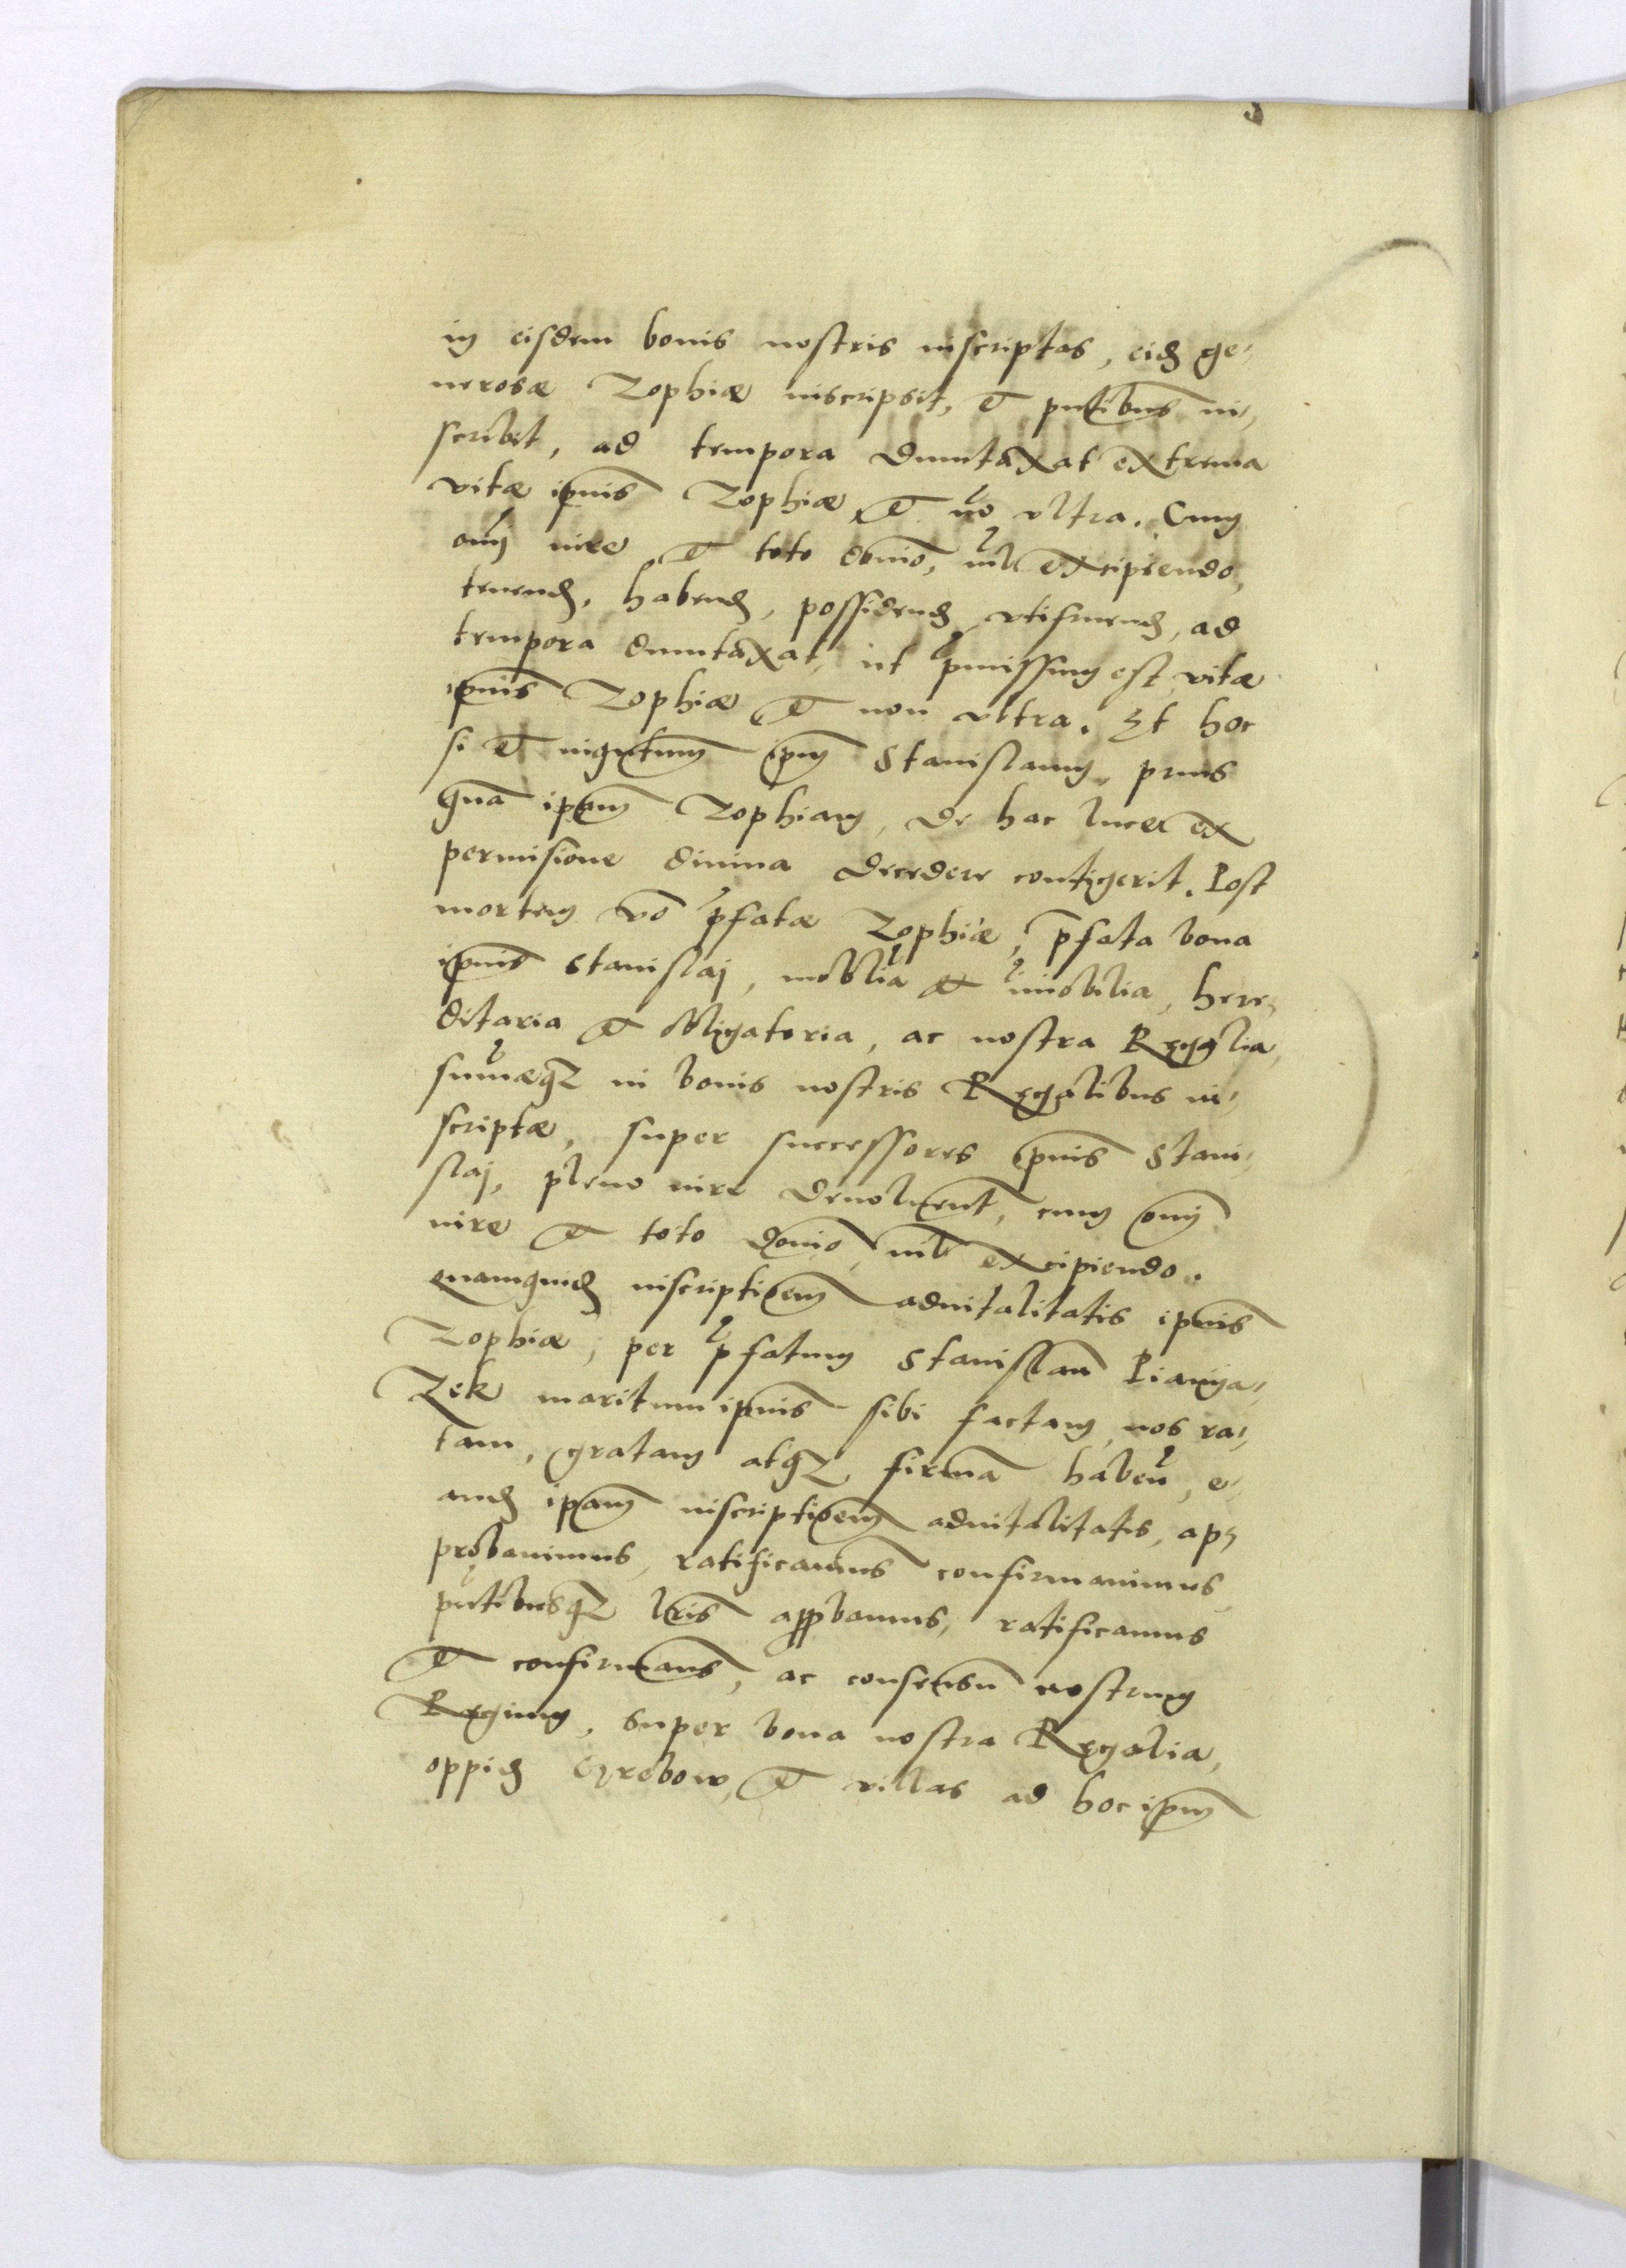 in eisdem bonis nostris inscriptas, eid ge-
nerosæ Zophiæ inscripsit, et pntibus in-
scribit, ad tempora dumtaxat extrema
vitæ ipius Zophiæ et no ultra. Cum
omi iure et toto domio, nil excipiendo,
tenend, habend, possidend utifruend, ad
tempora dumtaxat, ut pmissum est vitæ
ipius Zophiæ et non ultra. Et hoc
si et inquntum ipm Stanislaum, prius
quam ipam Zophiam, de hac luce ex
permisione divina decedere contigerit. Post
mortem vo pfatæ Zophiæ, pfata bona
ipius Stanislaj, mobilia et imobilia, here-
ditaria et obligatoria, ac nostra Regalia,
sumæqz in bonis nostris Regalibus in-
scriptæ, super successores ipius Stani-
slaj, pleno iure devolvent, cum omi
iure et toto domio, nil excipiendo.
Quamquid inscriptioem advitalitatis ipius
Zophiæ, per pfatum Stanislau Pianya-
Zek maritum ipius sibi factam, nos ra-
tam, gratam atqz firma haben, e-
and ipam inscriptioem advitalitatis, ap-
probavimus, ratificavimus confirmavimus
pntibusqz lris approbamus, ratificamus
et confirmams, ac consensu nostrum
Regium, super bona nostra Regalia,
oppid Czrebow, et villas ad hoc ipm